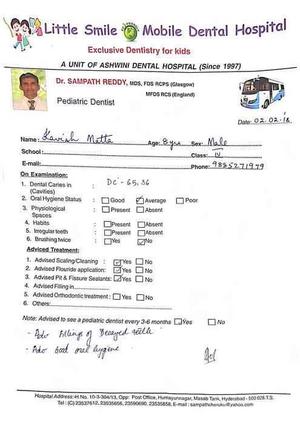 Little Smile Mobile Dental Hospital
Exclusive Dentistry for kids
A UNIT OF ASHWINI DENTAL HOSPITAL (Since 1997)
Dr. SAMPATH REDDY, MDS, FDS RCPS (Glasgow)
MFDS RCS (England)
Pediatric Dentist
Date: 02.02.18
Name: Kavish Matta Age: 8 yrs Sex: Male
School: Class: IV
E-mail: Phone: 9885271979
On Examination:
1. Dental Caries in (Cavities) : DC - 65, 36
2. Oral Hygiene Status : Good Average Poor
3. Physiological Spaces : Present Absent
4. Habits : Present Absent
5. Irregular teeth : Present Absent
6. Brushing twice : Yes No
Adviced Treatment:
1. Advised Scaling/Cleaning : Yes No
2. Advised Flouride application: Yes No
3. Advised Pit & Fissure Sealants: Yes No
4. Advised Filling in
5. Advised Orthodontic treatment : Yes No
6. Others:
Note: Advised to see a pediatric dentist every 3-6 months Yes No
- Adv Fillings of Decayed teeth
- Adv Good oral hygiene
Hospital Address: H.No. 10-3-304/13, Opp: Post Office, Humayunnagar, Masab Tank, Hyderabad - 500 028 T.S.
Tel : (C) 23537612, 23535656, 23590690, 23535658, E-mail : sampathchenuku@yahoo.com